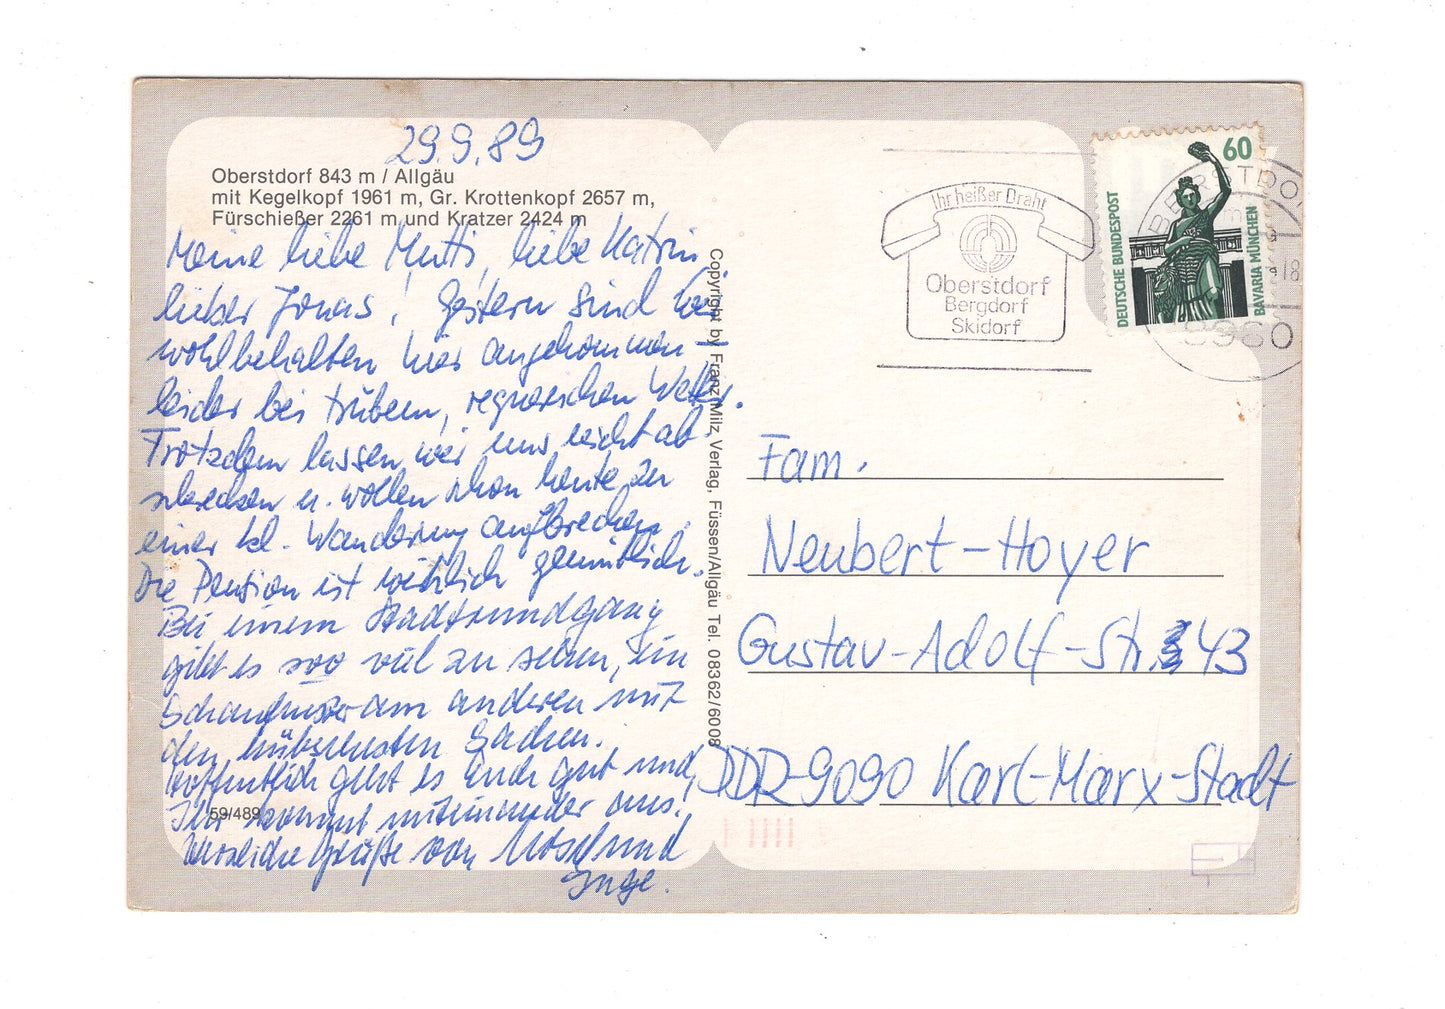 29.9.89
Oberstdorf 843 m / Allgäu
mit Kegelkopf 1961 m, Gr. Krottenkopf 2657 m,
Fürschießer 2261 m und Kratzer 2424 m
Meine liebe Mutti, liebe Katrin,
lieber Jonas! Gestern sind wir
wohlbehalten hier angekommen –
leider bei trübem, regnerischen Wetter.
Trotzdem lassen wir uns nicht ab-
schrecken u. wollen schon heute zu
einer kl. Wanderung aufbrechen.
Die Pension ist wirklich gemütlich.
Bei einem Stadtrundgang
gibt es soo viel zu sehen, ein
Schaufenster am anderen mit
den hübschesten Sachen.
Hoffentlich geht es Euch gut und
Ihr kommt miteinander aus.
Herzliche Grüße von und
Inge.
59/489
Copyright by Franz Milz, Verlag, Füssen/Allgäu Tel. 08362/6008
Ihr heißer Draht
Oberstdorf
Bergdorf
Skidorf
60
DEUTSCHE BUNDESPOST
BAVARIA MÜNCHEN
OBERSTDO
18
8980
Fam.
Neubert-Hoyer
Gustav-Adolf-Str. 43
DDR-9090 Karl-Marx-Stadt